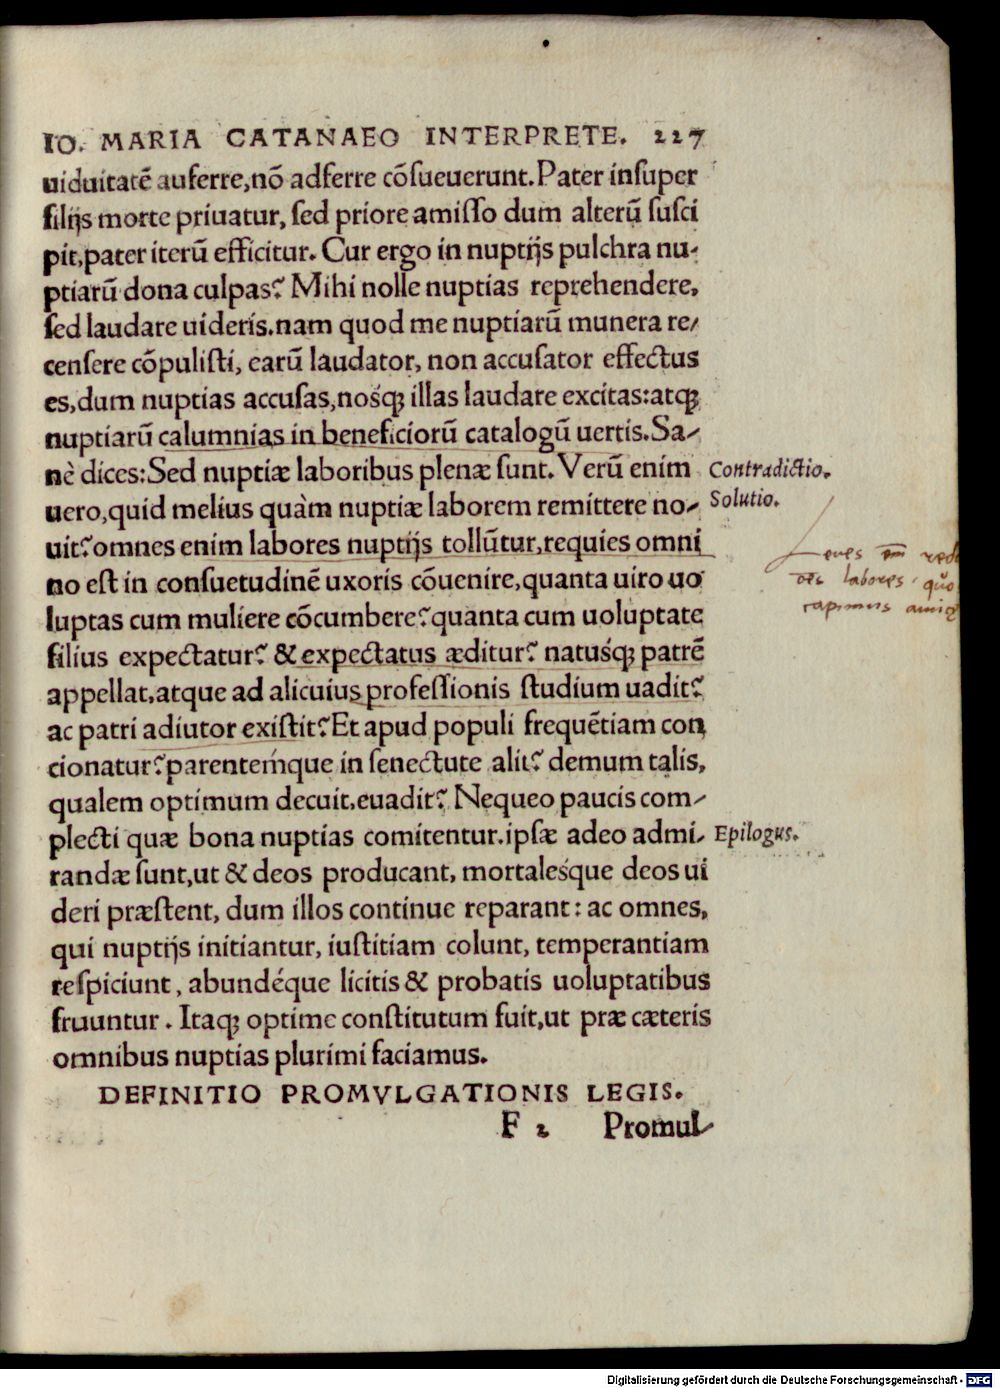 IO. MARIA CATANAEO INTERPRETE. 227
uiduitatē auferre,nō adferre cōſueuerunt.Pater inſuper
filijs morte priuatur, ſed priore amiſſo dum alterū ſuſci
pit,pater iterū efficitur. Cur ergo in nuptijs pulchra nu-
ptiarū dona culpas? Mihi nolle nuptias reprehendere,
ſed laudare uideris.nam quod me nuptiarū munera re-
cenſere cōpuliſti, earū laudator, non accuſator effectus
es,dum nuptias accuſas,nosq́ꝫ illas laudare excitas:atqꝫ
nuptiarū calumnias in beneficiorū catalogū uertis.Sa-
nè dices:Sed nuptiæ laboribus plenæ ſunt.Verū enim
Contradictio.
uero,quid melius quàm nuptiæ laborem remittere no-
Solutio.
uit?omnes enim labores nuptijs tollūtur,requies omni
no eſt in conſuetudinē uxoris cōuenire,quanta uiro uo
luptas cum muliere cōcumbere?quanta cum uoluptate
filius expectatur? & expectatus æditur? natusq́ꝫ patrē
appellat,atque ad alicuius profeſſionis ſtudium uadit?
ac patri adiutor exiſtit?Et apud populi frequētiam con
cionatur?parenteḿque in ſenectute alit? demum talis,
qualem optimum decuit.euadit? Nequeo paucis com-
plecti quæ bona nuptias comitentur.ipſæ adeo admi-
Epilogus.
randæ ſunt,ut & deos producant, mortaleśque deos ui
deri præſtent, dum illos continue reparant: ac omnes,
qui nuptijs initiantur, iuſtitiam colunt, temperantiam
reſpiciunt, abundéque licitis & probatis uoluptatibus
fruuntur. Itaqꝫ optime conſtitutum fuit,ut præ cæteris
omnibus nuptias plurimi faciamus.
DEFINITIO PROMVLGATIONIS LEGIS.
F 2 Promul-
Leues em̄
oēs labores
rapimus
Digitalisierung gefördert durch die Deutsche Forschungsgemeinschaft - DFG